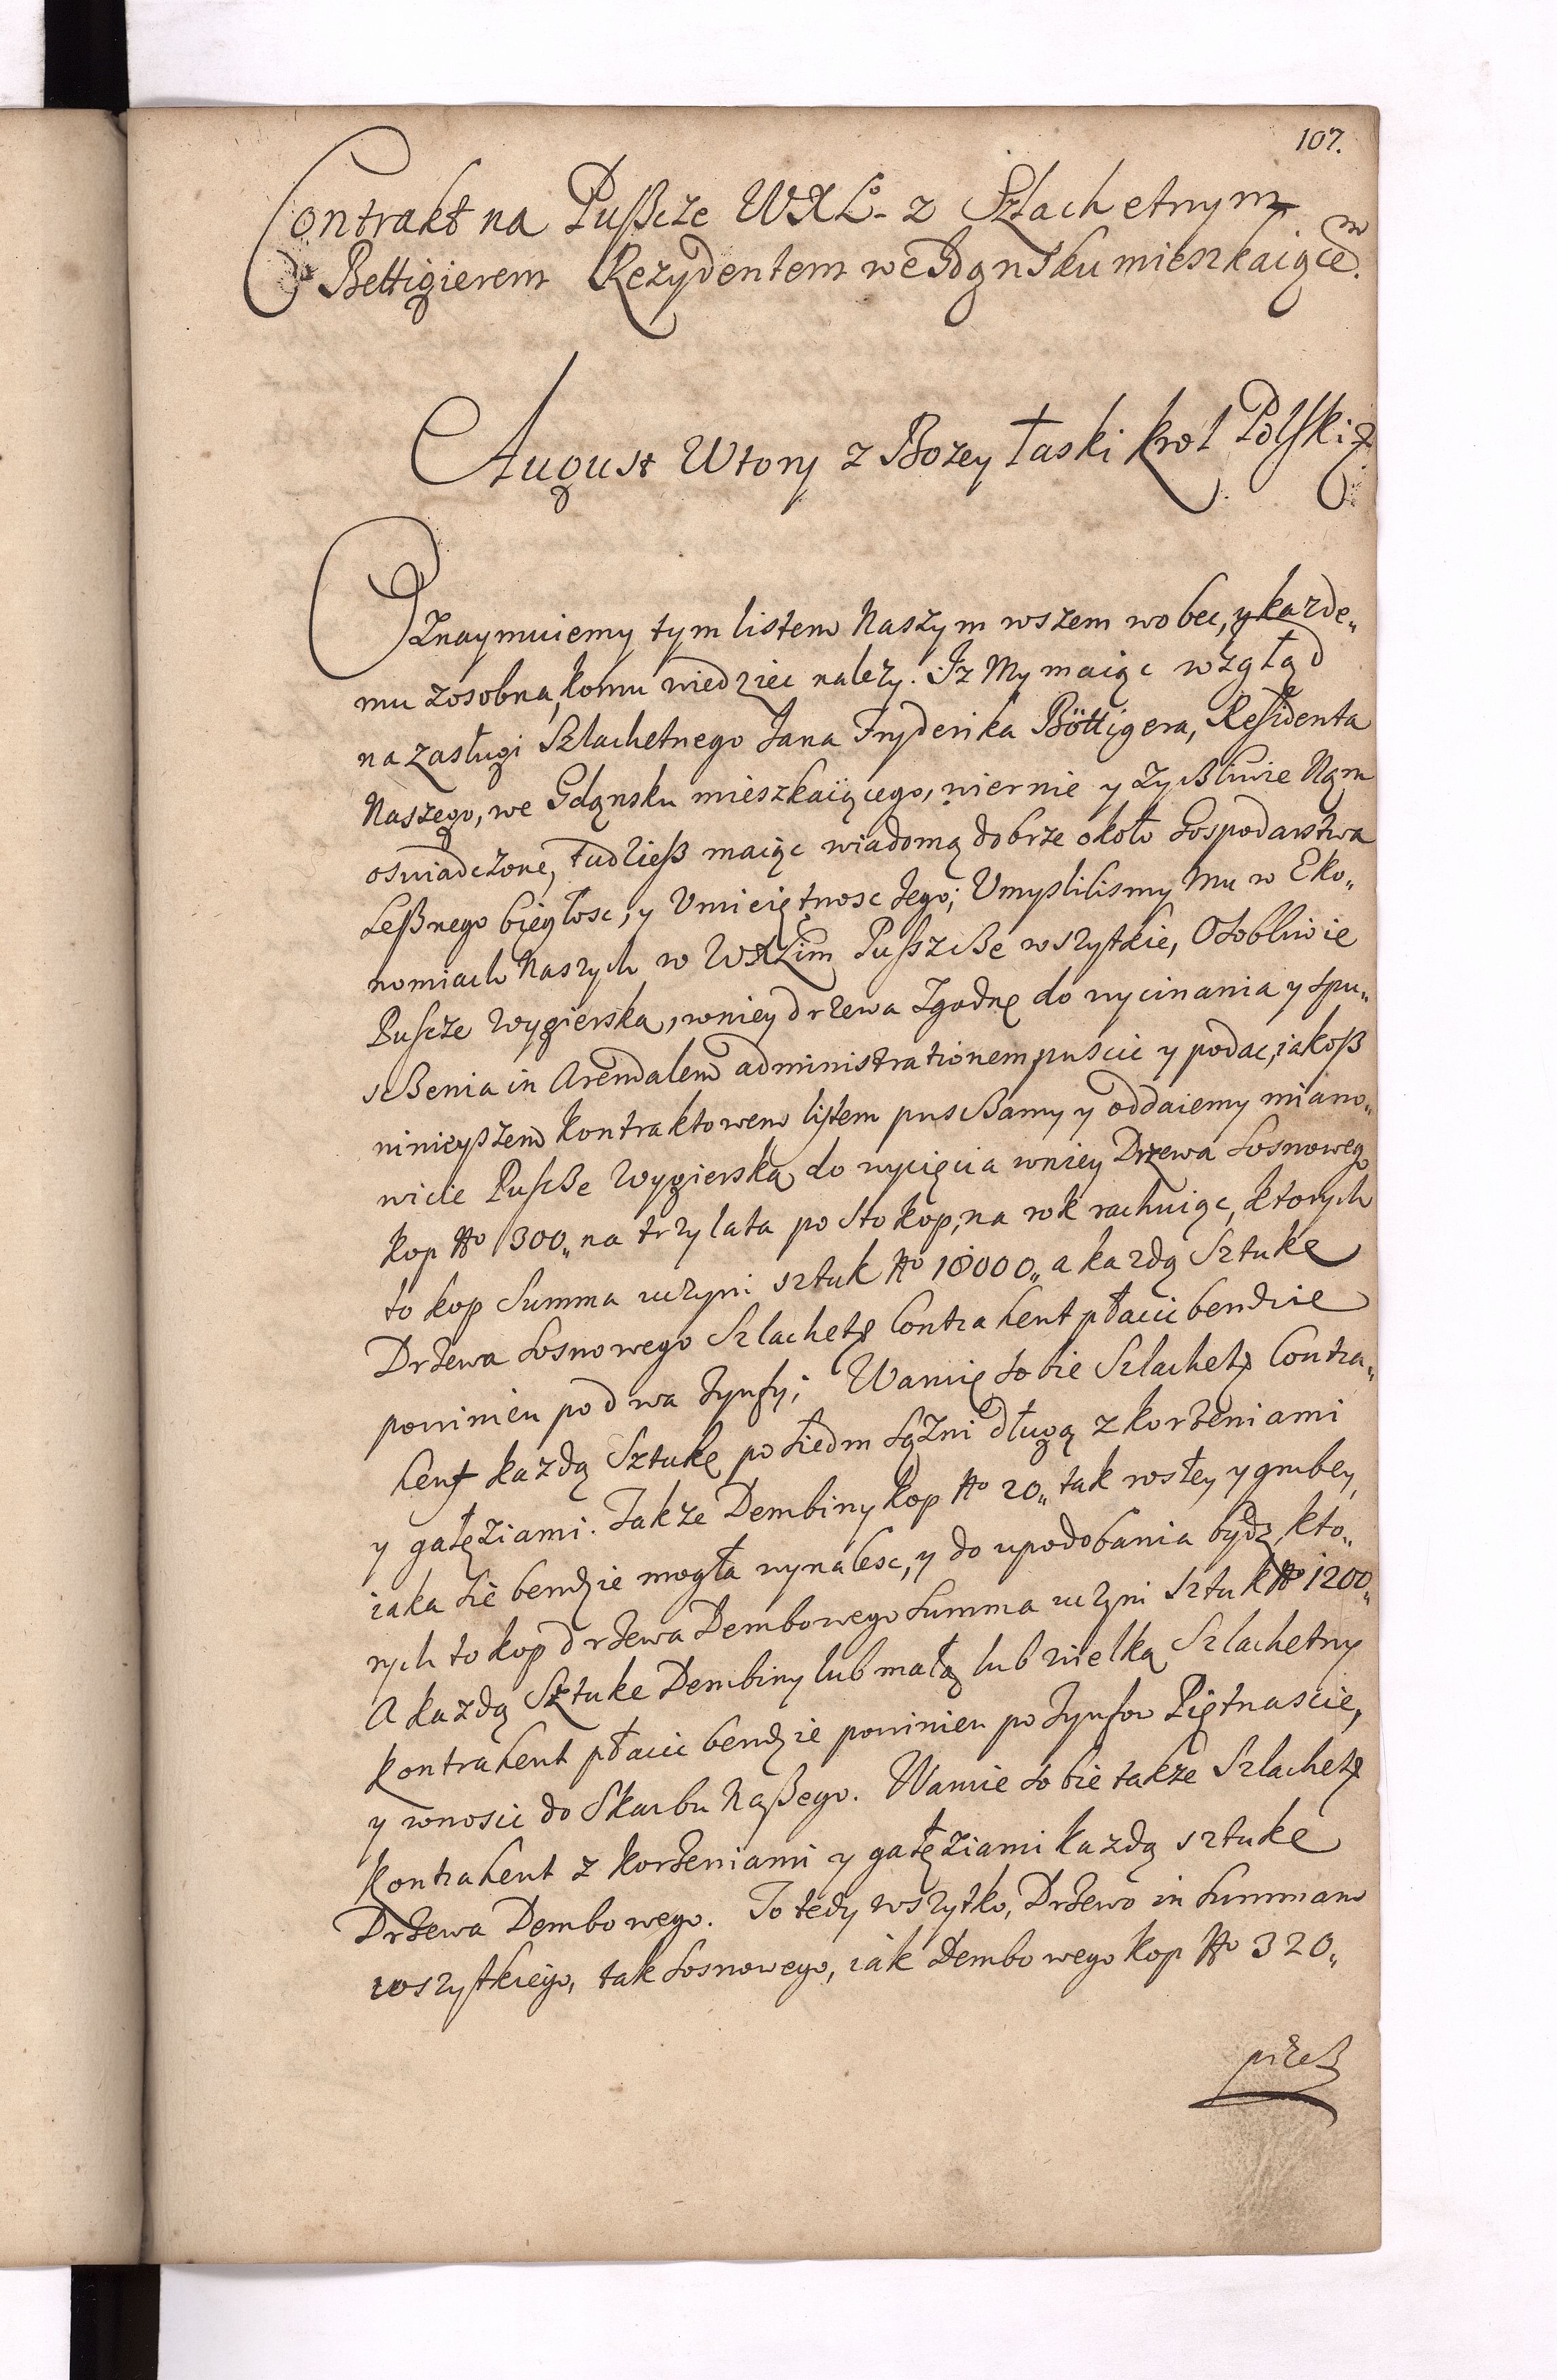 107.
Contrakt na Pußcze WXLo. z Szlachetnym
Bettigierem Rezydentem we Gdąnsku mieszkaiące.m
August Wtory z Bozey Łaski krol Polski &.
Oznaymuiemy tym listem Naszym wszem wobec, y kazde„
mu zosobna, komu wiedziec nalezy. Jz My maiąc wzgłąd
na zasługi Szlachetnego Jana Fryderika Böttigera, Residenta
Naszego, we Gdąnsku mieszkaiącego, wiernie y zyßliwie Nąm
oswiadczone, tudzieß maiąc wiadomą dobrze około Gospodarstwa
Leßnego biegłosc, y Umieiętnosc Jego; Umyslilismy Mu w Eko„
nomiach Naszych w WXLim Puszcße wszystkie, Osobliwie
Puscze Wygierska, wniey drzewa Zgodnę do wycinania y spu„
scßenia in Arendalem administrationem puscic y podac, iakoß
ninieyszem kontraktowem listem puscßamy y oddaiemy miano„
wicie Puscße Wygierską do wycięcia wniey Drzewa sosnowego
kop No 300„ na trzy lata po sto kop, na rok rachuiąc, ktorych
to kop Summa uczyni sztuk No 18000„ a kazdą Sztuke
Drzewa sosnowego Szlachetn Contrahent płacic bendzie
powinien po dwa Tynfy; Wamię sobie Szlachetn Contra„
hent kazdą Sztukę po siedm sążni długą z korzeniami
y gałęziami. Takze Dembiny kop No 20„ tak wsłey y grubey,
iaka sie bendzie mogła wynalesc, y do upodobania bydz, kto„
rych to kop drzewa Dembowego Summa uczyni Sztuk No 1200„
A kazdą Sztuke Dembiny lub małą lub wielką Szlachetny
Kontrahent płacic bendzie powinien po Tynfow Piętnascie,
y wnosic do Skarbu Naßego. Wamie sobie takze Szlachetn
Kontrahent z korzeniami y gałęziami kazdą sztuke
Drzewa Dembowego. To tedy wszytko, Drzewo in Summam
wszystkiego, tak sosnowego, iak Dembowego kop No 320„
przeß